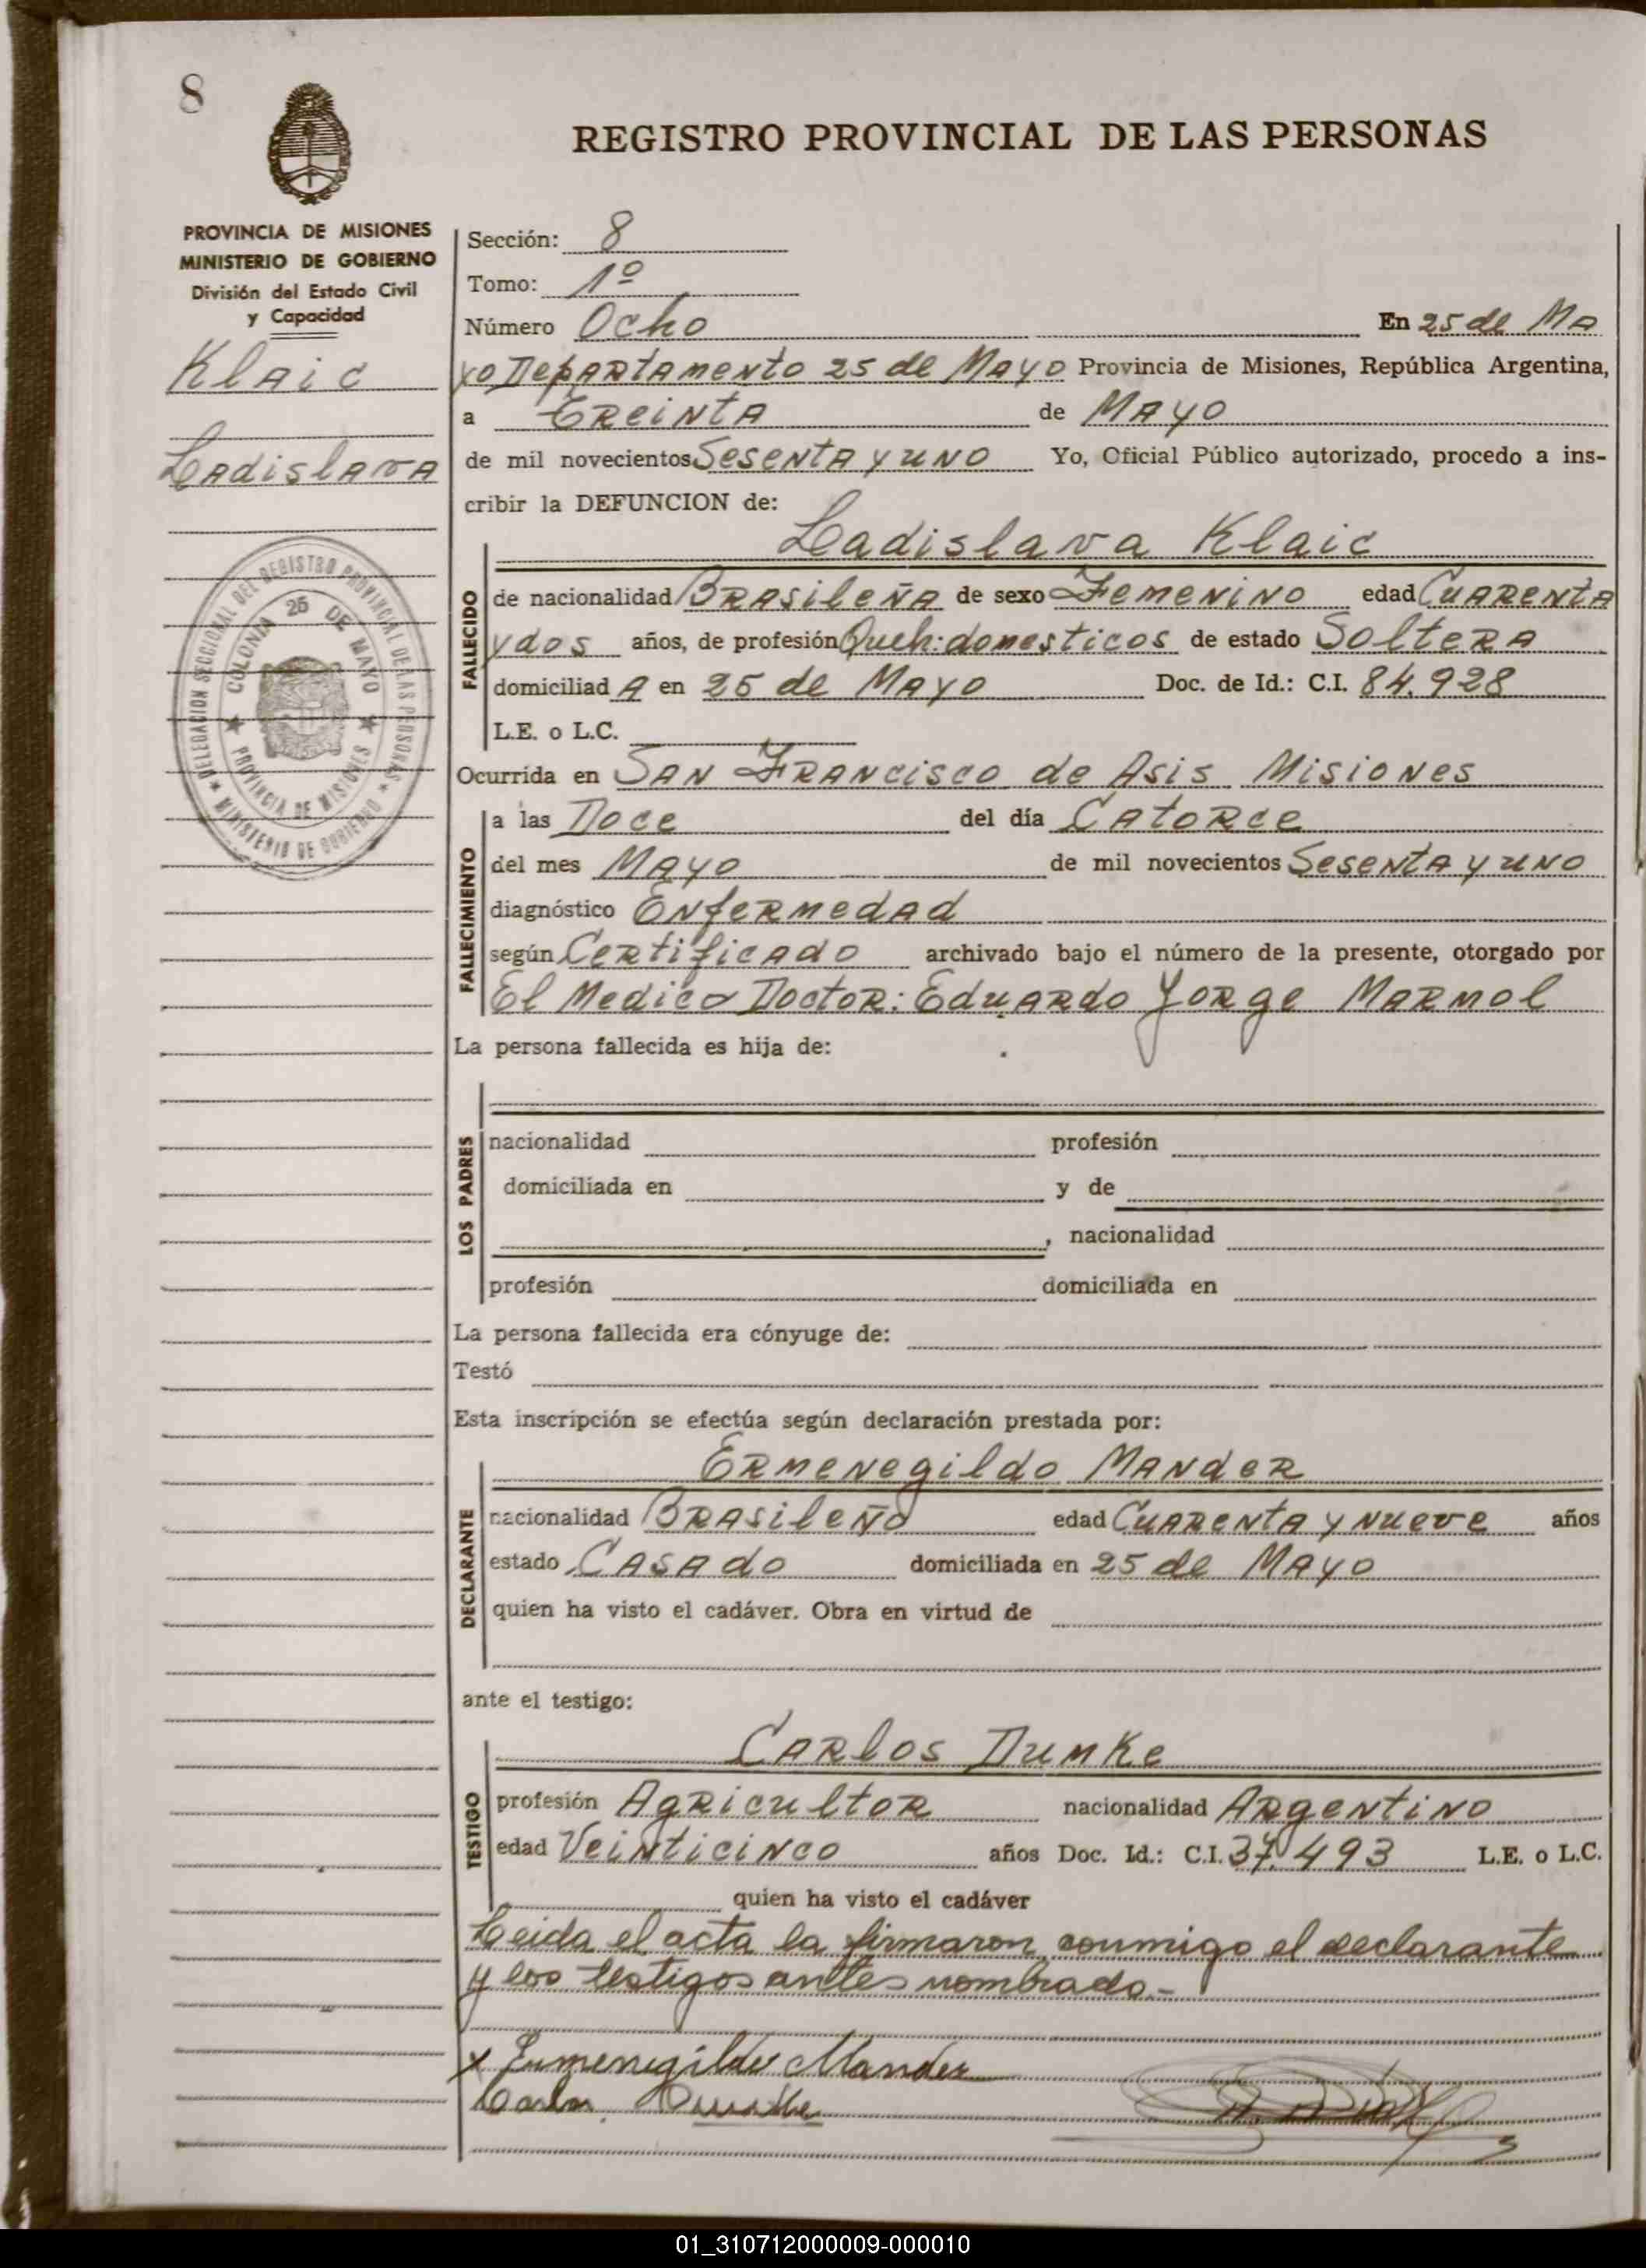 8
REGISTRO PROVINCIAL DE LAS PERSONAS
PROVINCIA DE MISIONES
MINISTERIO DE GOBIERNO
División del Estado Civil
y Capacidad
Klaic
Ladislava
DELEGACION SECCIONAL DEL REGISTRO PROVINCIAL DE LAS PERSONAS
MINISTERIO DE GOBIERNO
COLONIA 25 DE MAYO
PROVINCIA DE MISIONES
Sección: 8
Tomo: 1º
Número Ocho En 25 de Ma
yo Departamento 25 de Mayo Provincia de Misiones, República Argentina,
a Treinta de Mayo
de mil novecientos Sesenta y uno Yo, Oficial Público autorizado, procedo a ins-
cribir la DEFUNCION de:
Ladislava Klaic
FALLECIDO
de nacionalidad Brasileña de sexo Femenino edad Cuarenta
y dos años, de profesión Queh: domesticos de estado Soltera
domiciliad A en 25 de Mayo Doc. de Id.: C.I. 84.928
L.E. o L.C.
Ocurrida en San Francisco de Asis Misiones
FALLECIMIENTO
a las Doce del día Catorce
del mes Mayo de mil novecientos Sesenta y uno
diagnóstico Enfermedad
según Certificado archivado bajo el número de la presente, otorgado por
El Medico Doctor: Eduardo Jorge Marmol
La persona fallecida es hija de:
LOS PADRES
nacionalidad profesión
domiciliada en y de
, nacionalidad
profesión domiciliada en
La persona fallecida era cónyuge de:
Testó
Esta inscripción se efectúa según declaración prestada por:
Ermenegildo Mander
DECLARANTE
nacionalidad Brasileño edad Cuarenta y nueve años
estado Casado domiciliada en 25 de Mayo
quien ha visto el cadáver. Obra en virtud de
ante el testigo:
Carlos Dumke
TESTIGO
profesión Agricultor nacionalidad Argentino
edad Veinticinco años Doc. Id.: C.I. 37.493 L.E. o L.C.
quien ha visto el cadáver
Leida el acta la firmaron conmigo el declarante
y los testigos antes nombrado.-
x Ermenegildo Mander
Carlos Dumke
01_310712000009-000010